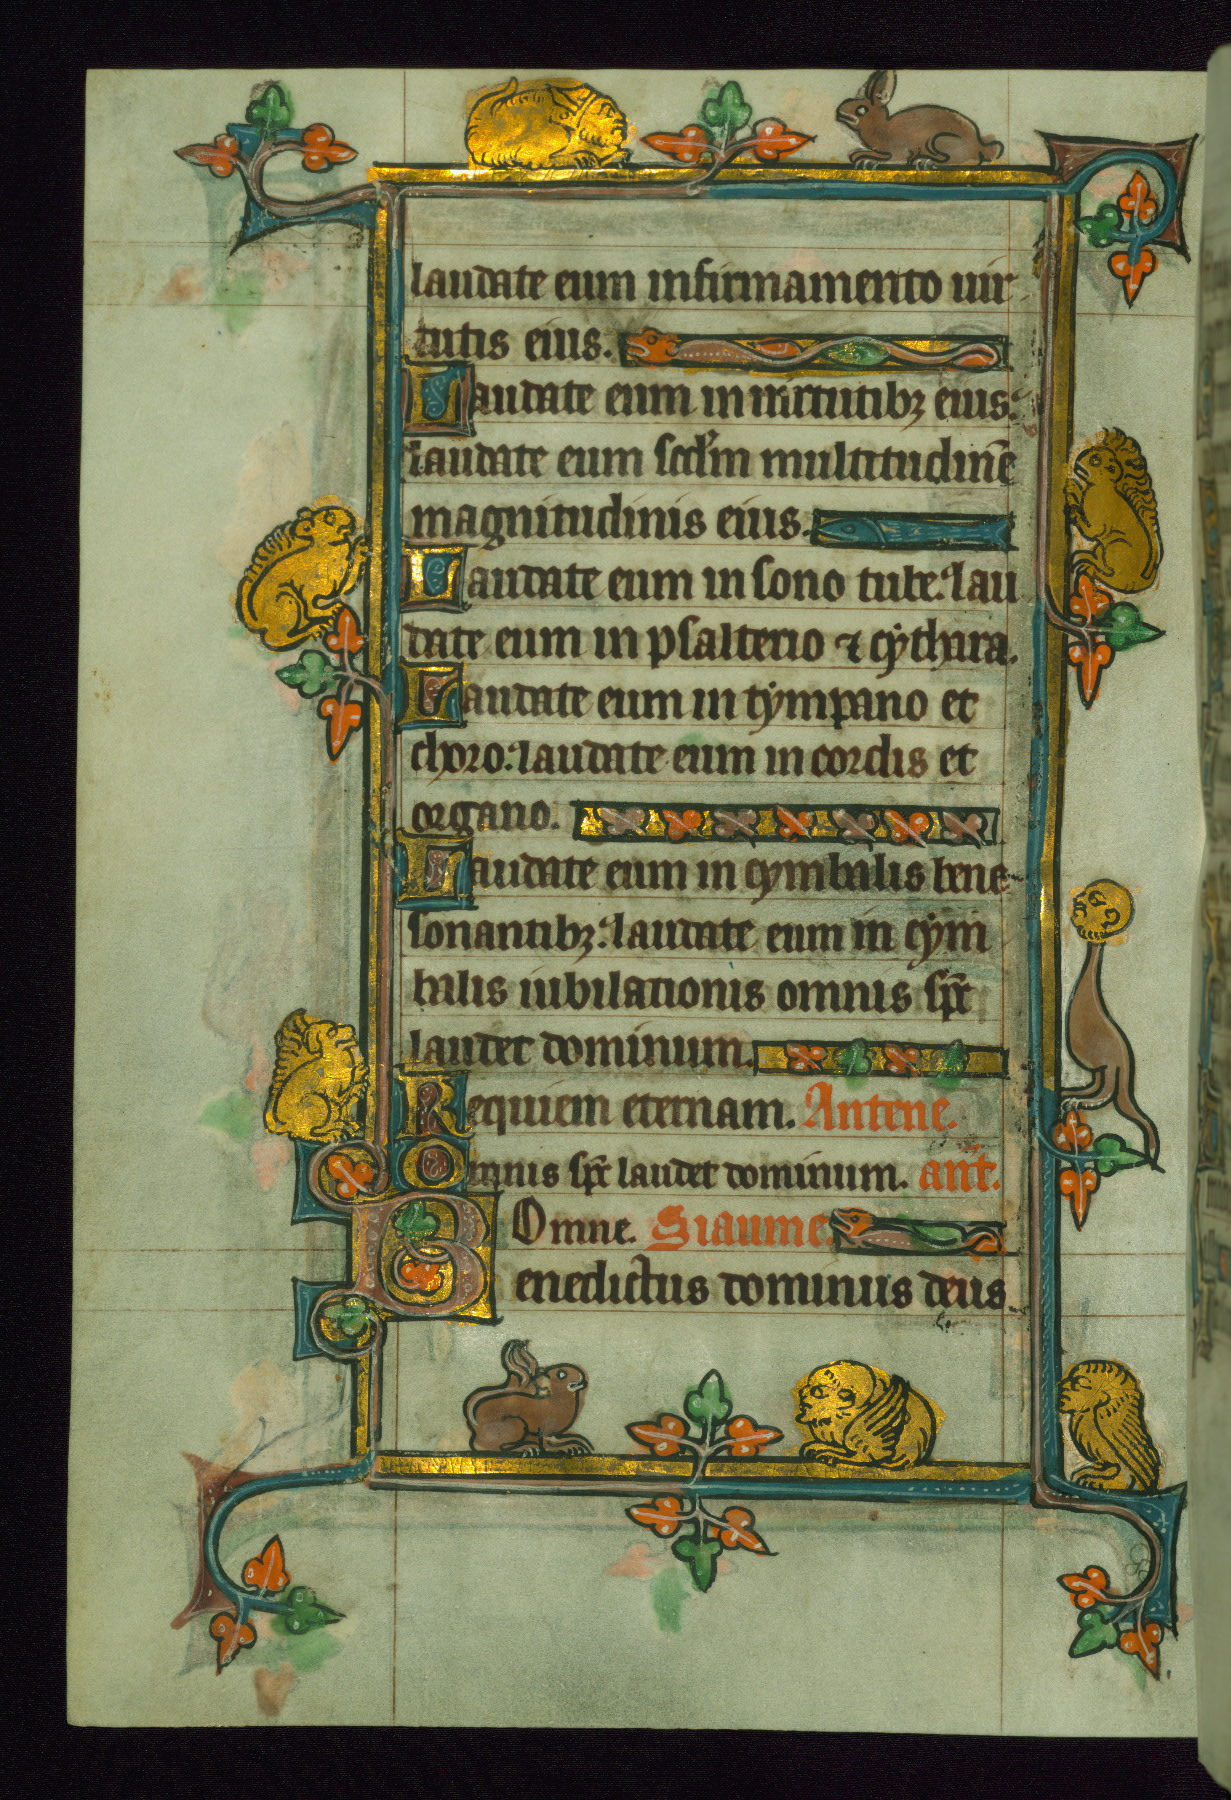 laudate eum in firmamento uir
tutis eius.
Laudate eum in uirtutibꝫ eius.
laudate eum scd'm multitudinē
magnitudinis eius.
Laudate eum in sono tube. lau
date eum in psalterio ⁊ cythara.
Laudate eum in tympano et
choro. laudate eum in cordis et
organo.
Laudate eum in cymbalis bene
sonantibꝫ. laudate eum in cym
balis iubilationis omnis sp̄c
laudet dominum.
Requiem eternam. Antene.
Omnis sp̄c laudet dominum. ant.
Omne. Siaume.
Benedictus dominus deus